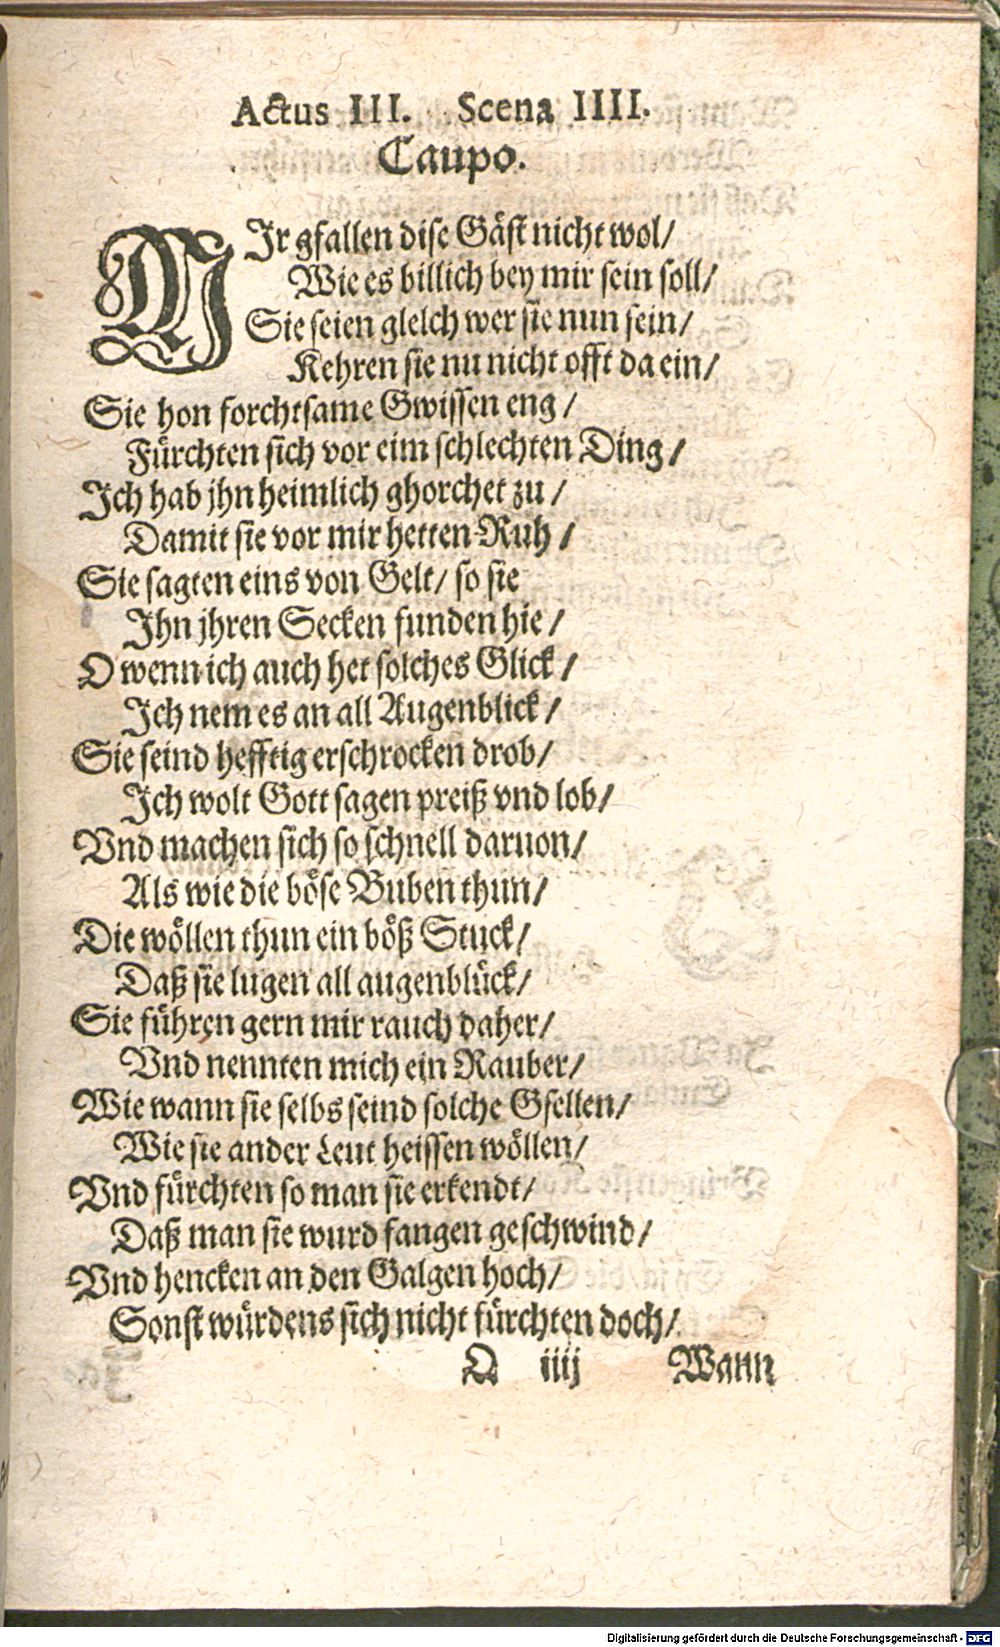 Actus III. Scena IIII.
Caupo.
MIr gfallen dise Gäst nicht wol/
Wie es billich bey mir sein soll/
Sie seien gleich wer sie nun sein/
Kehren sie nu nicht offt da ein/
Sie hon forchtsame Gwissen eng/
Fürchten sich vor eim schlechten Ding/
Ich hab jhn heimlich ghorchet zu/
Damit sie vor mir hetten Ruh/
Sie sagten eins von Gelt/ so sie
Ihn jhren Secken funden hie/
O wenn ich auch het solches Glick/
Ich nem es an all Augenblick/
Sie seind hefftig erschrocken drob/
Ich wolt Gott sagen preiß vnd lob/
Vnd machen sich so schnell daruon/
Als wie die böse Buben thun/
Die wöllen thun ein böß Stuck/
Daß sie lugen all augenblück/
Sie führen gern mir rauch daher/
Vnd nennten mich ein Rauber/
Wie wann sie selbs seind solche Gsellen/
Wie sie ander Leut heissen wöllen/
Vnd fürchten so man sie erkendt/
Daß man sie wurd fangen geschwind/
Vnd hencken an den Galgen hoch/
Sonst würdens sich nicht fürchten doch/
Q iiij Wann
Digitalisierung gefördert durch die Deutsche Forschungsgemeinschaft - DFG